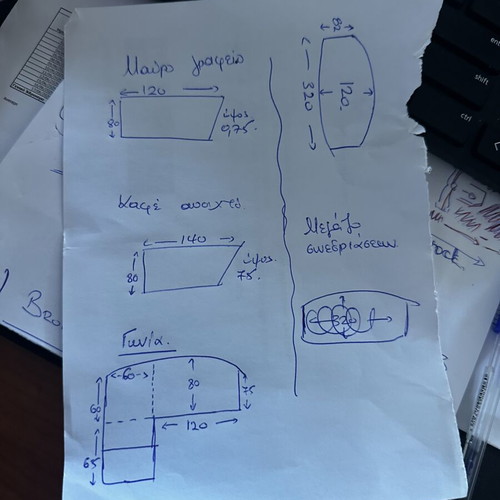 Μαύρο γραφείο
120
80
ύψος
0,75.
Καφέ ανοιχτό
140
80
ύψος
75.
Γωνία.
60
80
75
60
120
65
82
320
120.
Μεγάλο
συνεδριάσεων
320
shift
ctrl